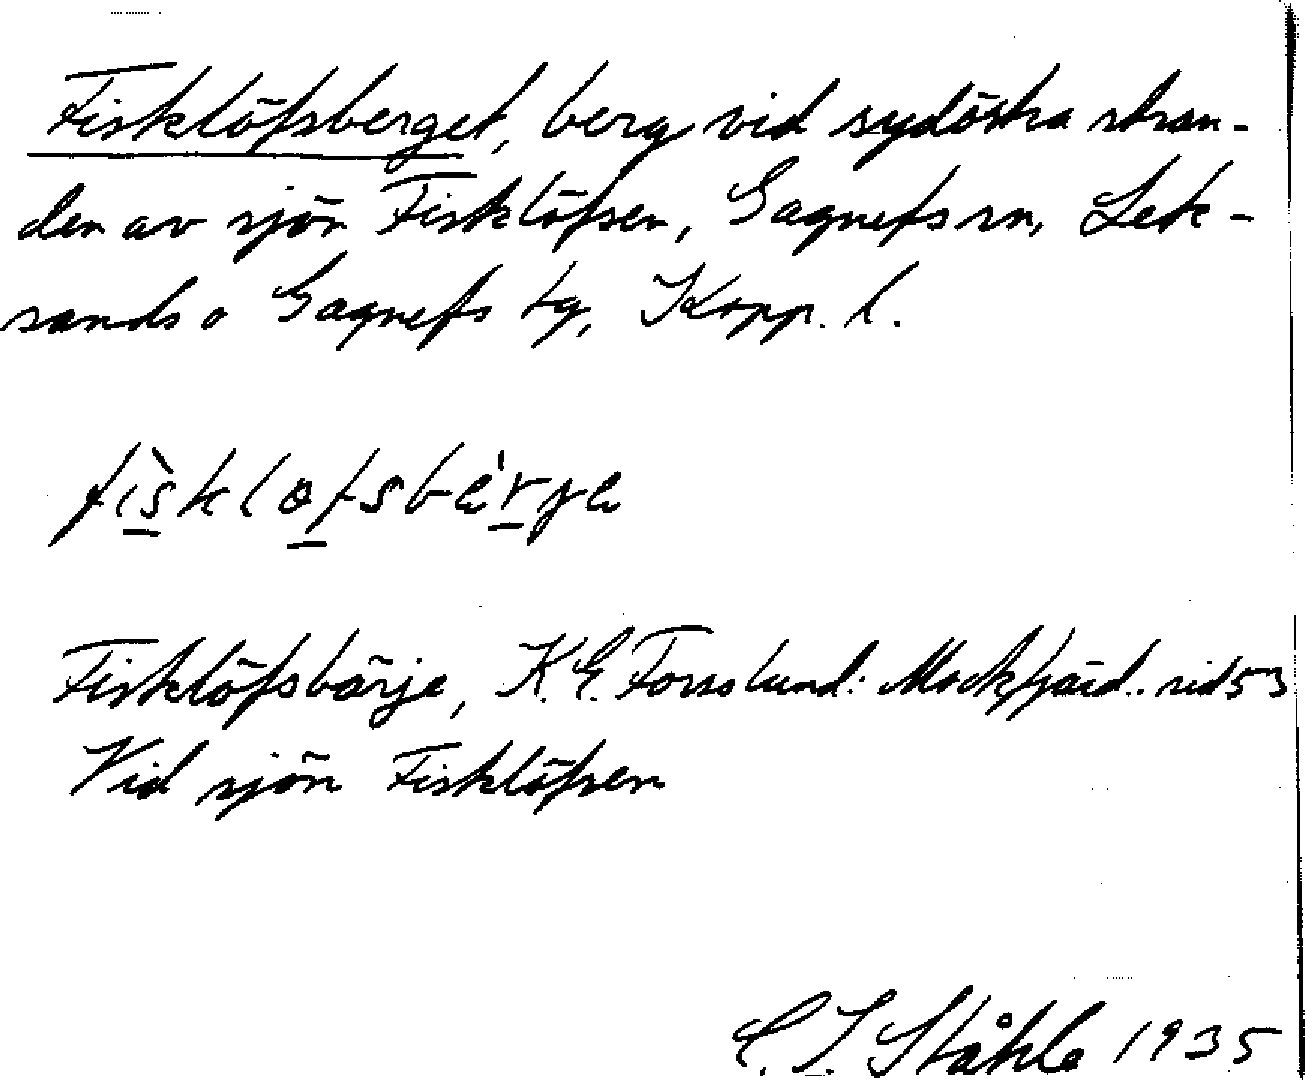 Fisklöfsberget, berg vid sydöstra stran-
den av sjön Fisklöfsen, Gagnefs sn, Lek-
sands o Gagnefs tg, Kopp. l.
Fisklöfsbärje, K.E. Forsslund: Mockfjärd. sid 53
Vid sjön Fisklöfsen
C. I. Ståhle 1935